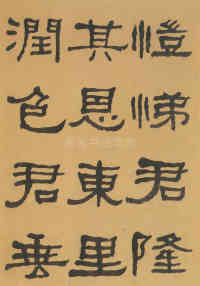 愷悌君隆
其恩東里
潤色君垂